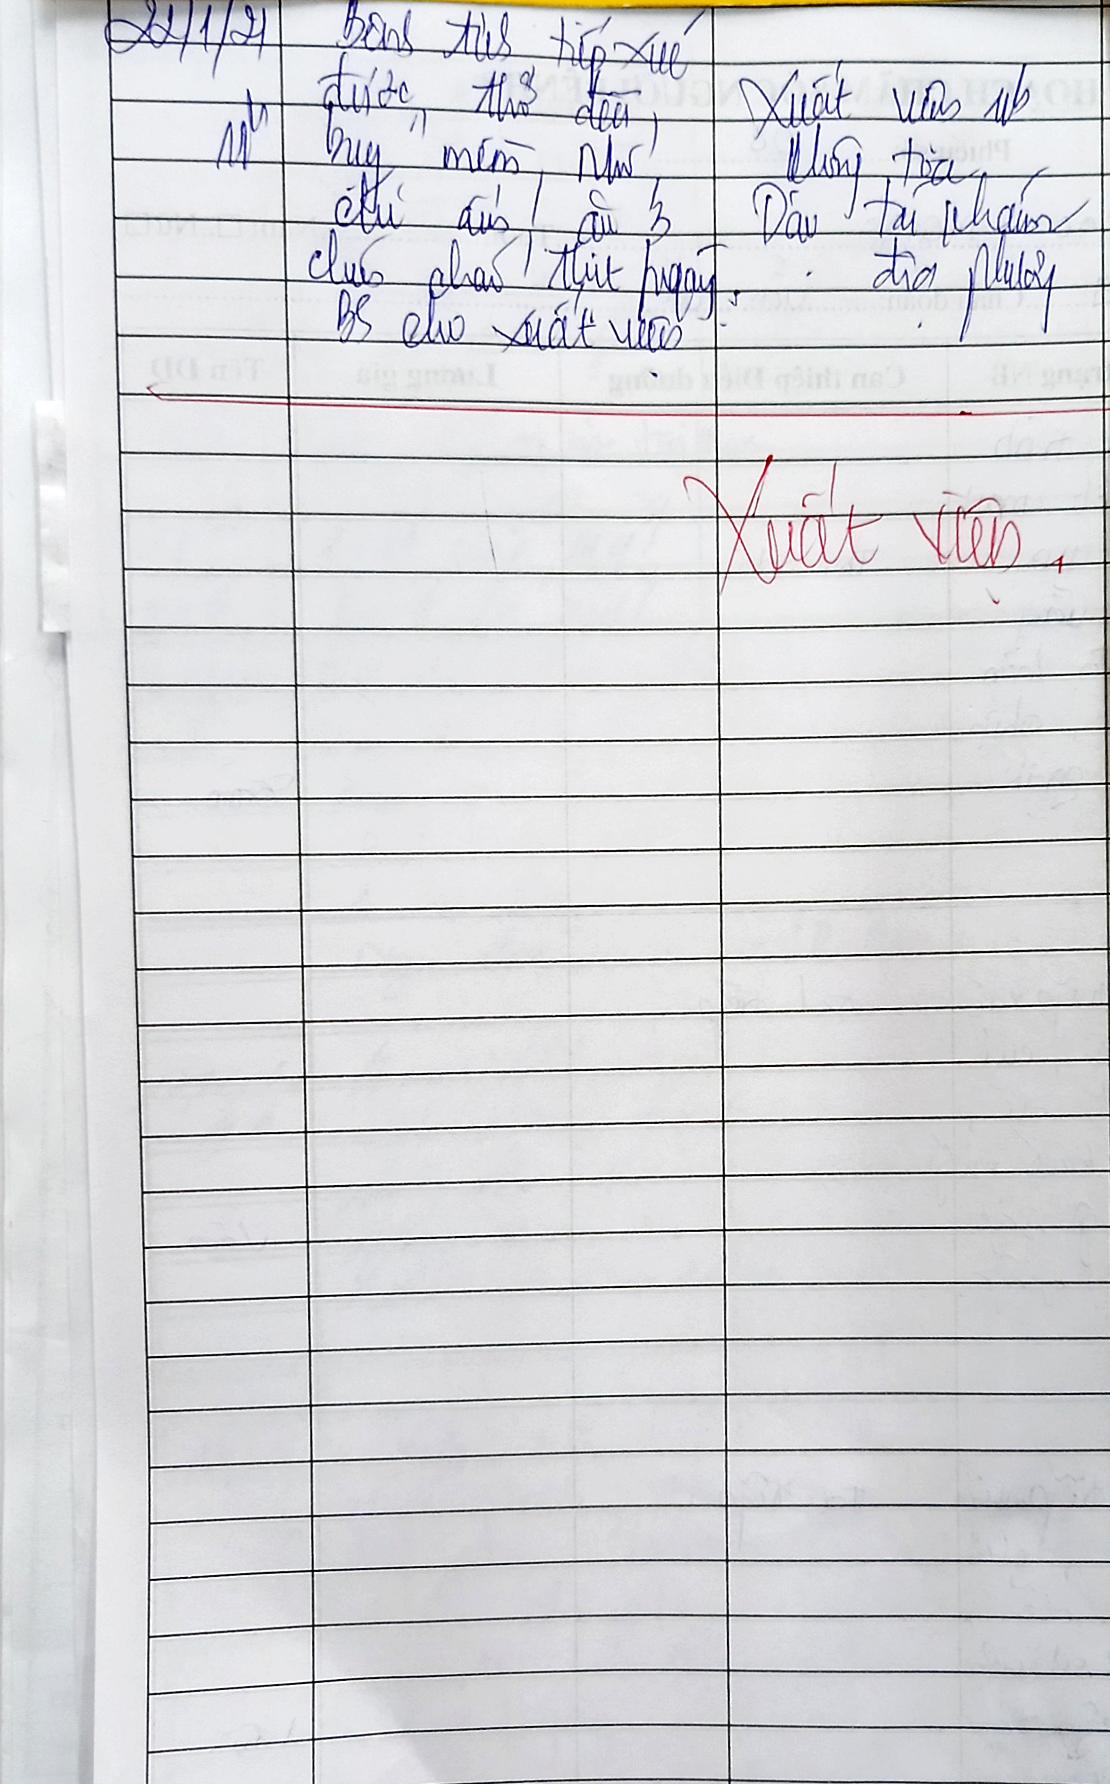 22/1/21
11h
Bệnh tỉnh tiếp xúc
được, thở đều,
bụng mềm
ăn 3
chén cháo thịt/ngày.
BS cho xuất viện
Xuất viện
không toa
Dặn tái khám
địa phương
Xuất viện